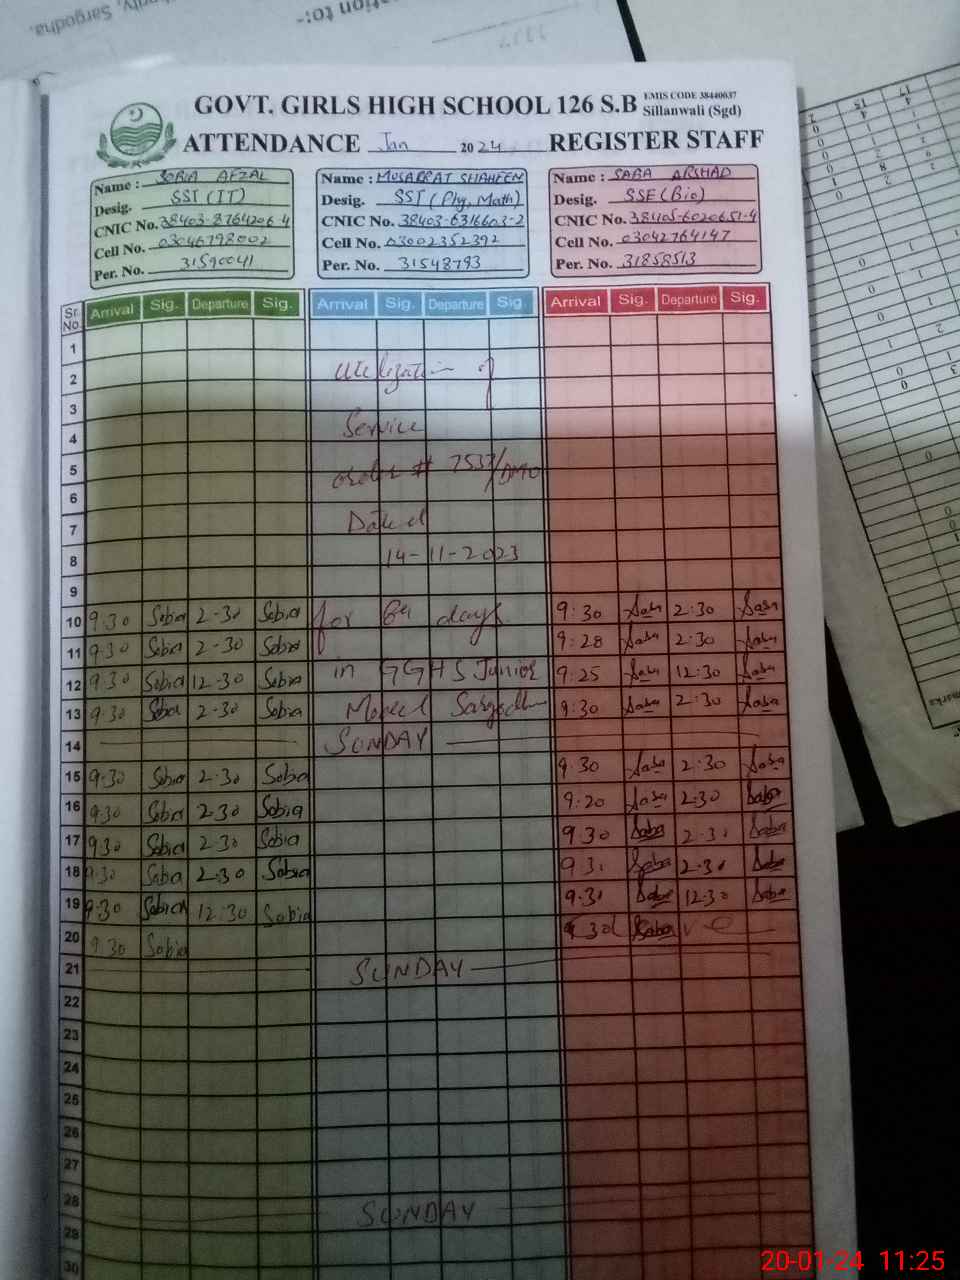 GOVT. GIRLS HIGH SCHOOL 126 S.B EMIS CODE 38440037
Sillanwali (Sgd)
ATTENDANCE Jan 2024 REGISTER STAFF
Name : SOBIA AFZAL
Desig. SST (IT)
CNIC No. 38403-8764206-4
Cell No. 03046798002
Per. No. 31590041
Name : MUSARRAT SHAHEEN
Desig. SST (Phy, Math)
CNIC No. 38403-6316603-2
Cell No. 03002352392
Per. No. 31548793
Name : SABA ARSHAD
Desig. SSE (Bio)
CNIC No. 38405-6020651-4
Cell No. 03042764147
Per. No. 31858513
Sr. No. Arrival Sig. Departure Sig. Arrival Sig. Departure Sig Arrival Sig. Departure Sig.
1
2 Utilization of
3
4 Service
5 order # 7537/DMO
6
7 Dated
8 14-11-2023
9
10 9:30 Sobia 2-30 Sobia for 89 days 9:30 Saba 2:30 Saba
11 9:30 Sobia 2-30 Sobia 9:28 Saba 2:30 Saba
12 9:30 Sobia 12-30 Sobia in GGHS Junior 9:25 Saba 12:30 Saba
13 9:30 Sobia 2-30 Sobia Model Sargodha 9:30 Saba 2:30 Saba
14 SUNDAY
15 9:30 Sobia 2:30 Sobia 9:30 Saba 2:30 Saba
16 9:30 Sobia 2-30 Sobia 9:20 Saba 2:30 Saba
17 9:30 Sobia 2-30 Sobia 9:30 Saba 2-30 Saba
18 9:30 Sobia 2-30 Sobia 9:31 Saba 2-30 Saba
19 9:30 Sobia 12:30 Sobia 9:31 Saba 12-30 Saba
20 9:30 Sobia 9:30 Saba
21 SUNDAY
22
23
24
25
26
27
28 SUNDAY
29
30
20-01-24 11:25